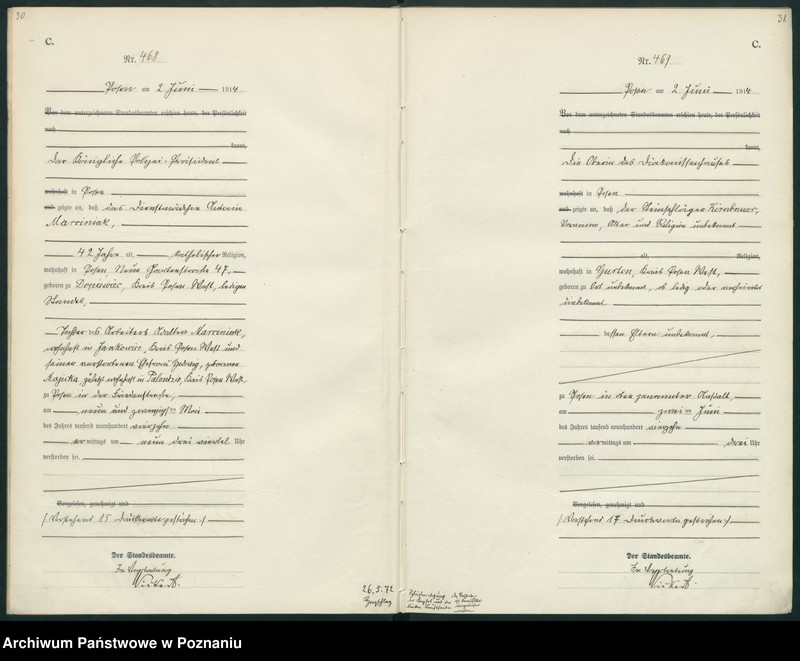 30.
C.
Nr. 468
Posen am 2 Juni 1914
Vor dem unterzeichneten Standesbeamten erschien heute, der Persönlichkeit
nach
kannt,
Der Königliche Polizei-Präsident
wohnhaft in Posen
und zeigte an, daß das Dienstmädchen Antonie
Marciniak,
42 Jahre alt, katholischer Religion,
wohnhaft in Posen, Neue Gartenstraße 47,
geboren zu Dopiewiec, Kreis Posen West, ledigen
Standes,
Tochter des Arbeiters Walter Marciniak,
wohnhaft in Jankowice, Kreis Posen West und
seiner verstorbenen Ehefrau Hedwig, geborenen
Majicka, zuletzt wohnhaft in Palendzie, Kreis Posen West,
zu Posen in der
am neun und zwanzigsten Mai
des Jahres tausend neunhundert vierzehn
vormittags um neun drei viertel Uhr
verstorben sei.
Vorgelesen, genehmigt und
(Vorstehend 15 Druckworte gestrichen)
Der Standesbeamte.
In Vertretung
26.5.72
31.
C.
Nr. 469
Posen am 2 Juni 1914
Vor dem unterzeichneten Standesbeamten erschien heute, der Persönlichkeit
nach
kannt,
Die Oberin des Diakonissenhauses
wohnhaft in Posen
und zeigte an, daß der Steinschläger Kirnbauer,
Vorname, Alter und Religion unbekannt
alt, Religion,
wohnhaft in Gurten, Kreis Posen West,
geboren zu Ort unbekannt, ob ledig oder verheiratet
unbekannt
dessen Eltern unbekannt,
zu Posen in der genannten Anstalt,
am zwei ten Juni
des Jahres tausend neunhundert vierzehn
vormittags um drei Uhr
verstorben sei.
Vorgelesen, genehmigt und
(Vorstehend 17 Druckworte gestrichen)
Der Standesbeamte.
In Vertretung
Archiwum Państwowe w Poznaniu